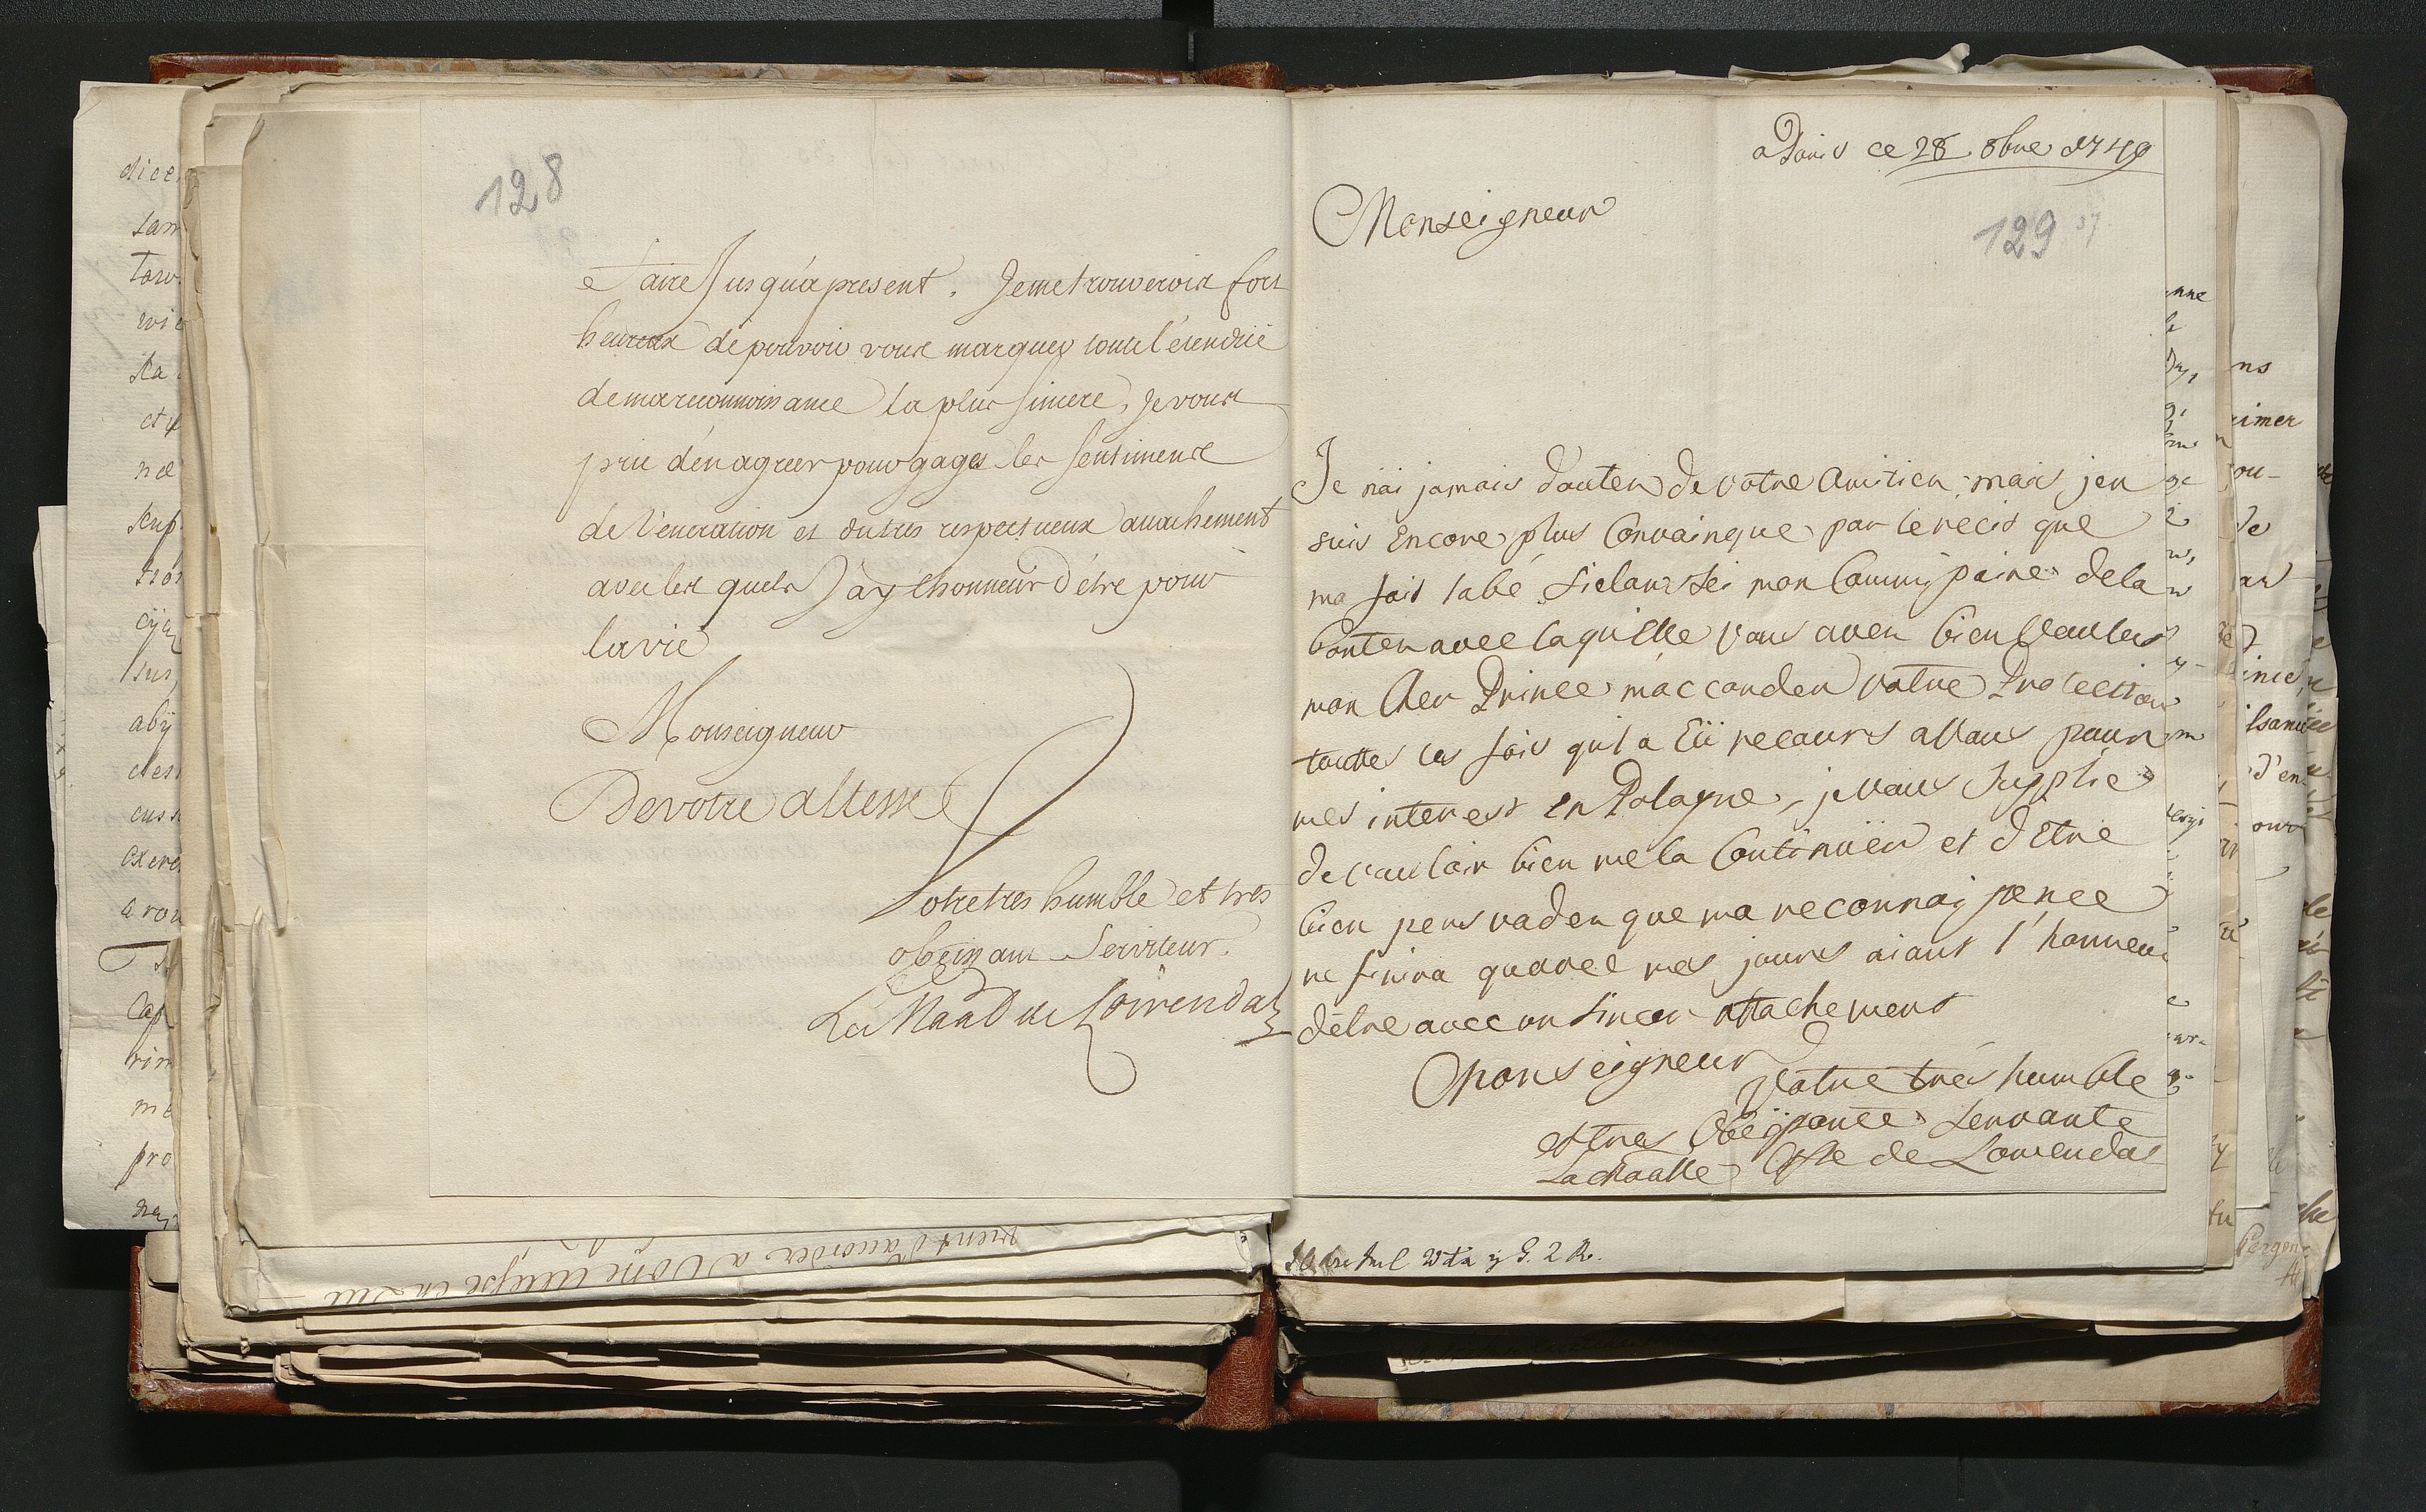 128
faire Jusqu'a present. Je me trouverois fort
heureux de pouvoir vous marquer toute l'étendüe
de ma reconnoissance la plus sincere, Je vous
prie d'en agreer pour gages les sentimens
de Veneration et du tres respectueux attachement
avec les quels J'ay l'honneur d'étre pour
la vie
Monseigneur
De votre altesse
Votre tres humble et tres
obeissant Serviteur.
Le Maal de Löwendal
a Paris ce 28 8bre 1749
Monseigneur
129 37
Je n'ai jamais douter de votre Amitien mais jen
suis Encore plus Convainque par le recis que
ma fait labé mon Commissaire de la
bonter avec laquelle vous aven bien Voulus
mon Cher Prince m'accorder votre Protection
toutes les fois quil a Eü recours a Vous pour
mes interest en Pologne, je vous Supplie
de vouloir bien me la Continüer et d'Etre
bien persvader que ma reconnaissence
ne finira quavec mes jours aiant l'honneur
d'etre avec un sincer attachement
Monseigneur
Votre trés humble
et tres Obeissante Servante
La Maalle Csse de Lowendal